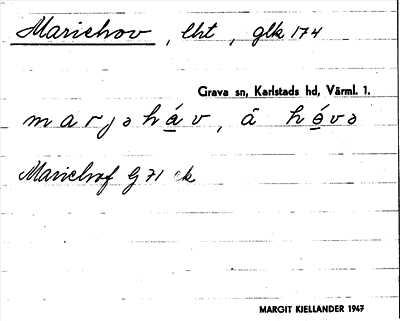 Mariehov, lht, glk 174
Grava sn, Karlstads hd, Värml. l.
marjəháv, å hóvə
Mariehof G 71 ek
MARGIT KIELLANDER 1947